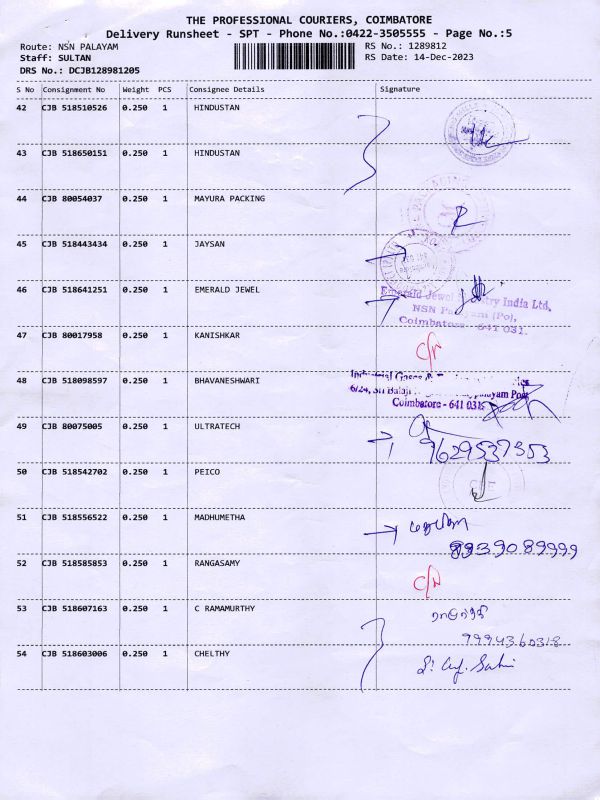 THE PROFESSIONAL COURIERS, COIMBATORE
Delivery Runsheet - SPT - Phone No.:0422-3505555 - Page No.:5
Route: NSN PALAYAM RS No.: 1289812
Staff: SULTAN RS Date: 14-Dec-2023
DRS No.: DCJB128981205
S No Consignment No Weight PCS Consignee Details Signature
42 CJB 518510526 0.250 1 HINDUSTAN
43 CJB 518650151 0.250 1 HINDUSTAN
44 CJB 80054037 0.250 1 MAYURA PACKING
45 CJB 518443434 0.250 1 JAYSAN
46 CJB 518641251 0.250 1 EMERALD JEWEL
Emerald Jewel India Ltd,
NSN (Po),
Coimbatore - 641 031.
47 CJB 80017958 0.250 1 KANISHKAR C/N
48 CJB 518098597 0.250 1 BHAVANESHWARI
Industrial Gases
6/24, Sri Balaji Post
Coimbatore - 641 031
49 CJB 80075005 0.250 1 ULTRATECH
9629537353
50 CJB 518542702 0.250 1 PEICO
51 CJB 518556522 0.250 1 MADHUMETHA
8939089999
52 CJB 518585853 0.250 1 RANGASAMY C/N
53 CJB 518607163 0.250 1 C RAMAMURTHY
9994360318
54 CJB 518603006 0.250 1 CHELTHY